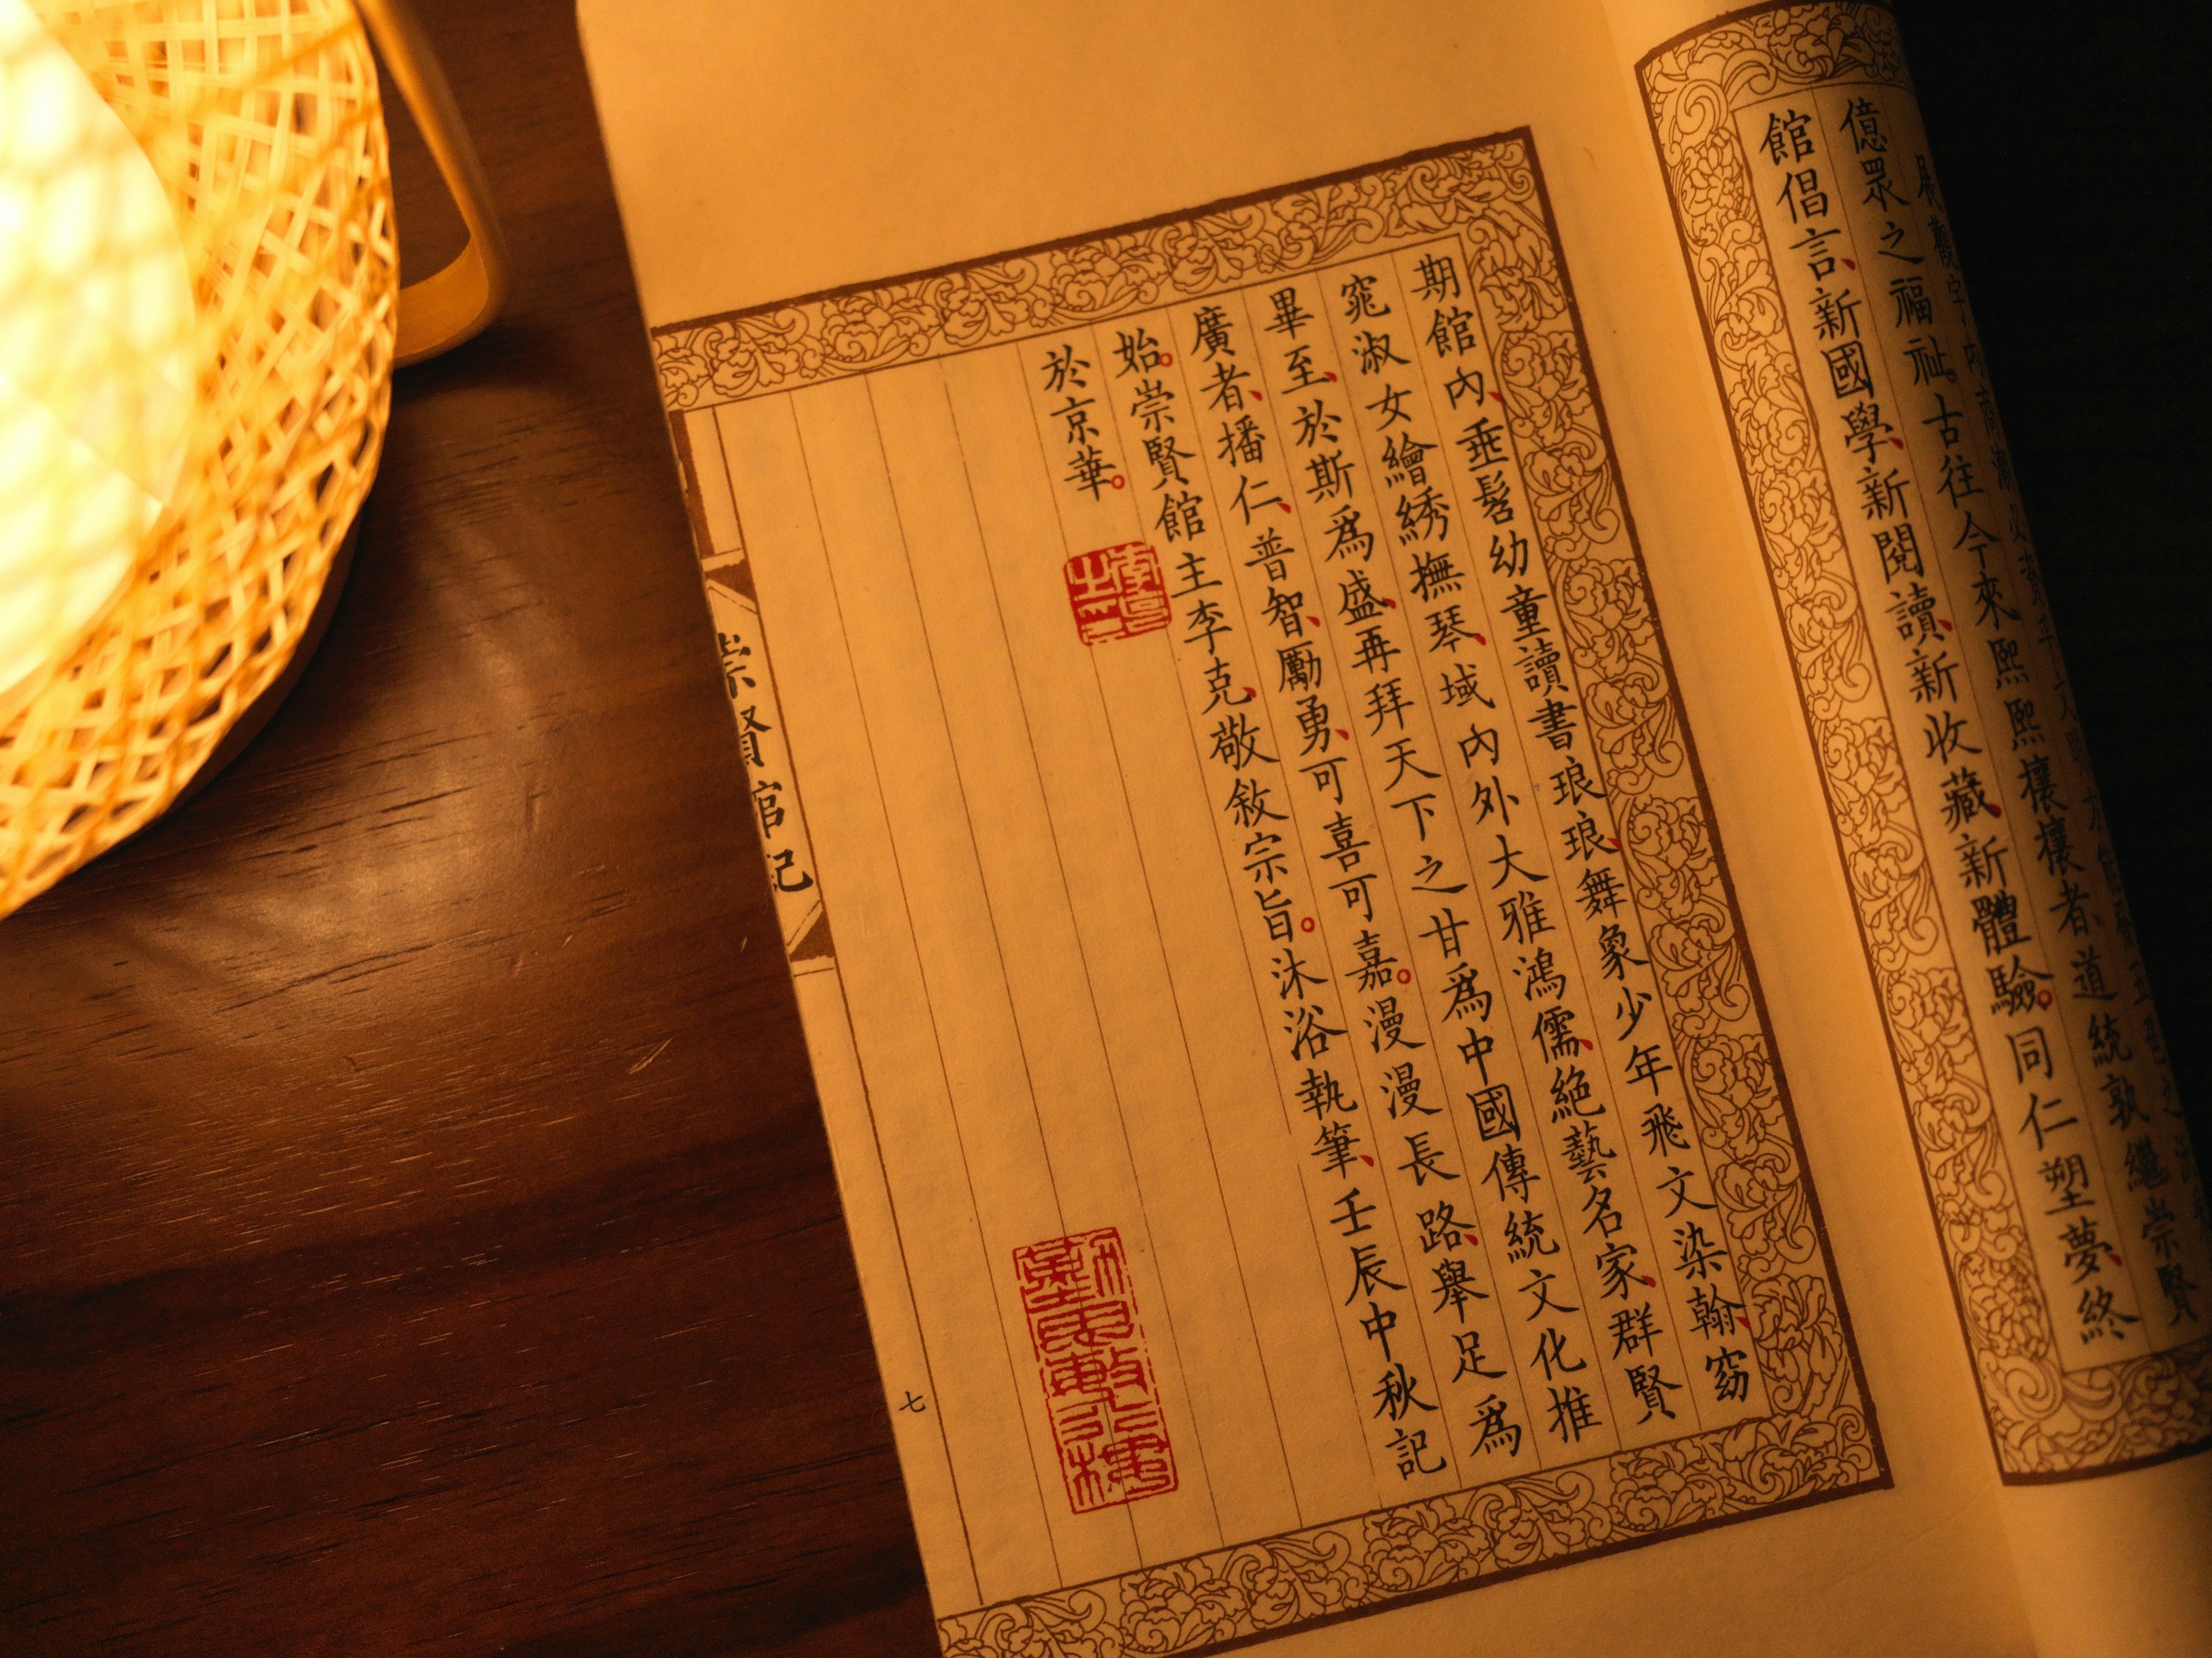 億眾之福祉。古往今來熙熙攘攘者、道統執繼崇賢
館倡言、新國學、新閱讀、新收藏、新體驗。同仁塑夢、終
期館內、垂髫幼童讀書琅琅、舞象少年飛文染翰、窈
窕淑女繪綉撫琴、域內外大雅鴻儒、絕藝名家、群賢
畢至、於斯爲盛、再拜天下之甘爲中國傳統文化推
廣者、播仁、普智、勵勇、可喜可嘉。漫漫長路、舉足爲
始。崇賢館主李克、敬敘宗旨。沐浴執筆、壬辰中秋記
於京華。
崇賢館記
七